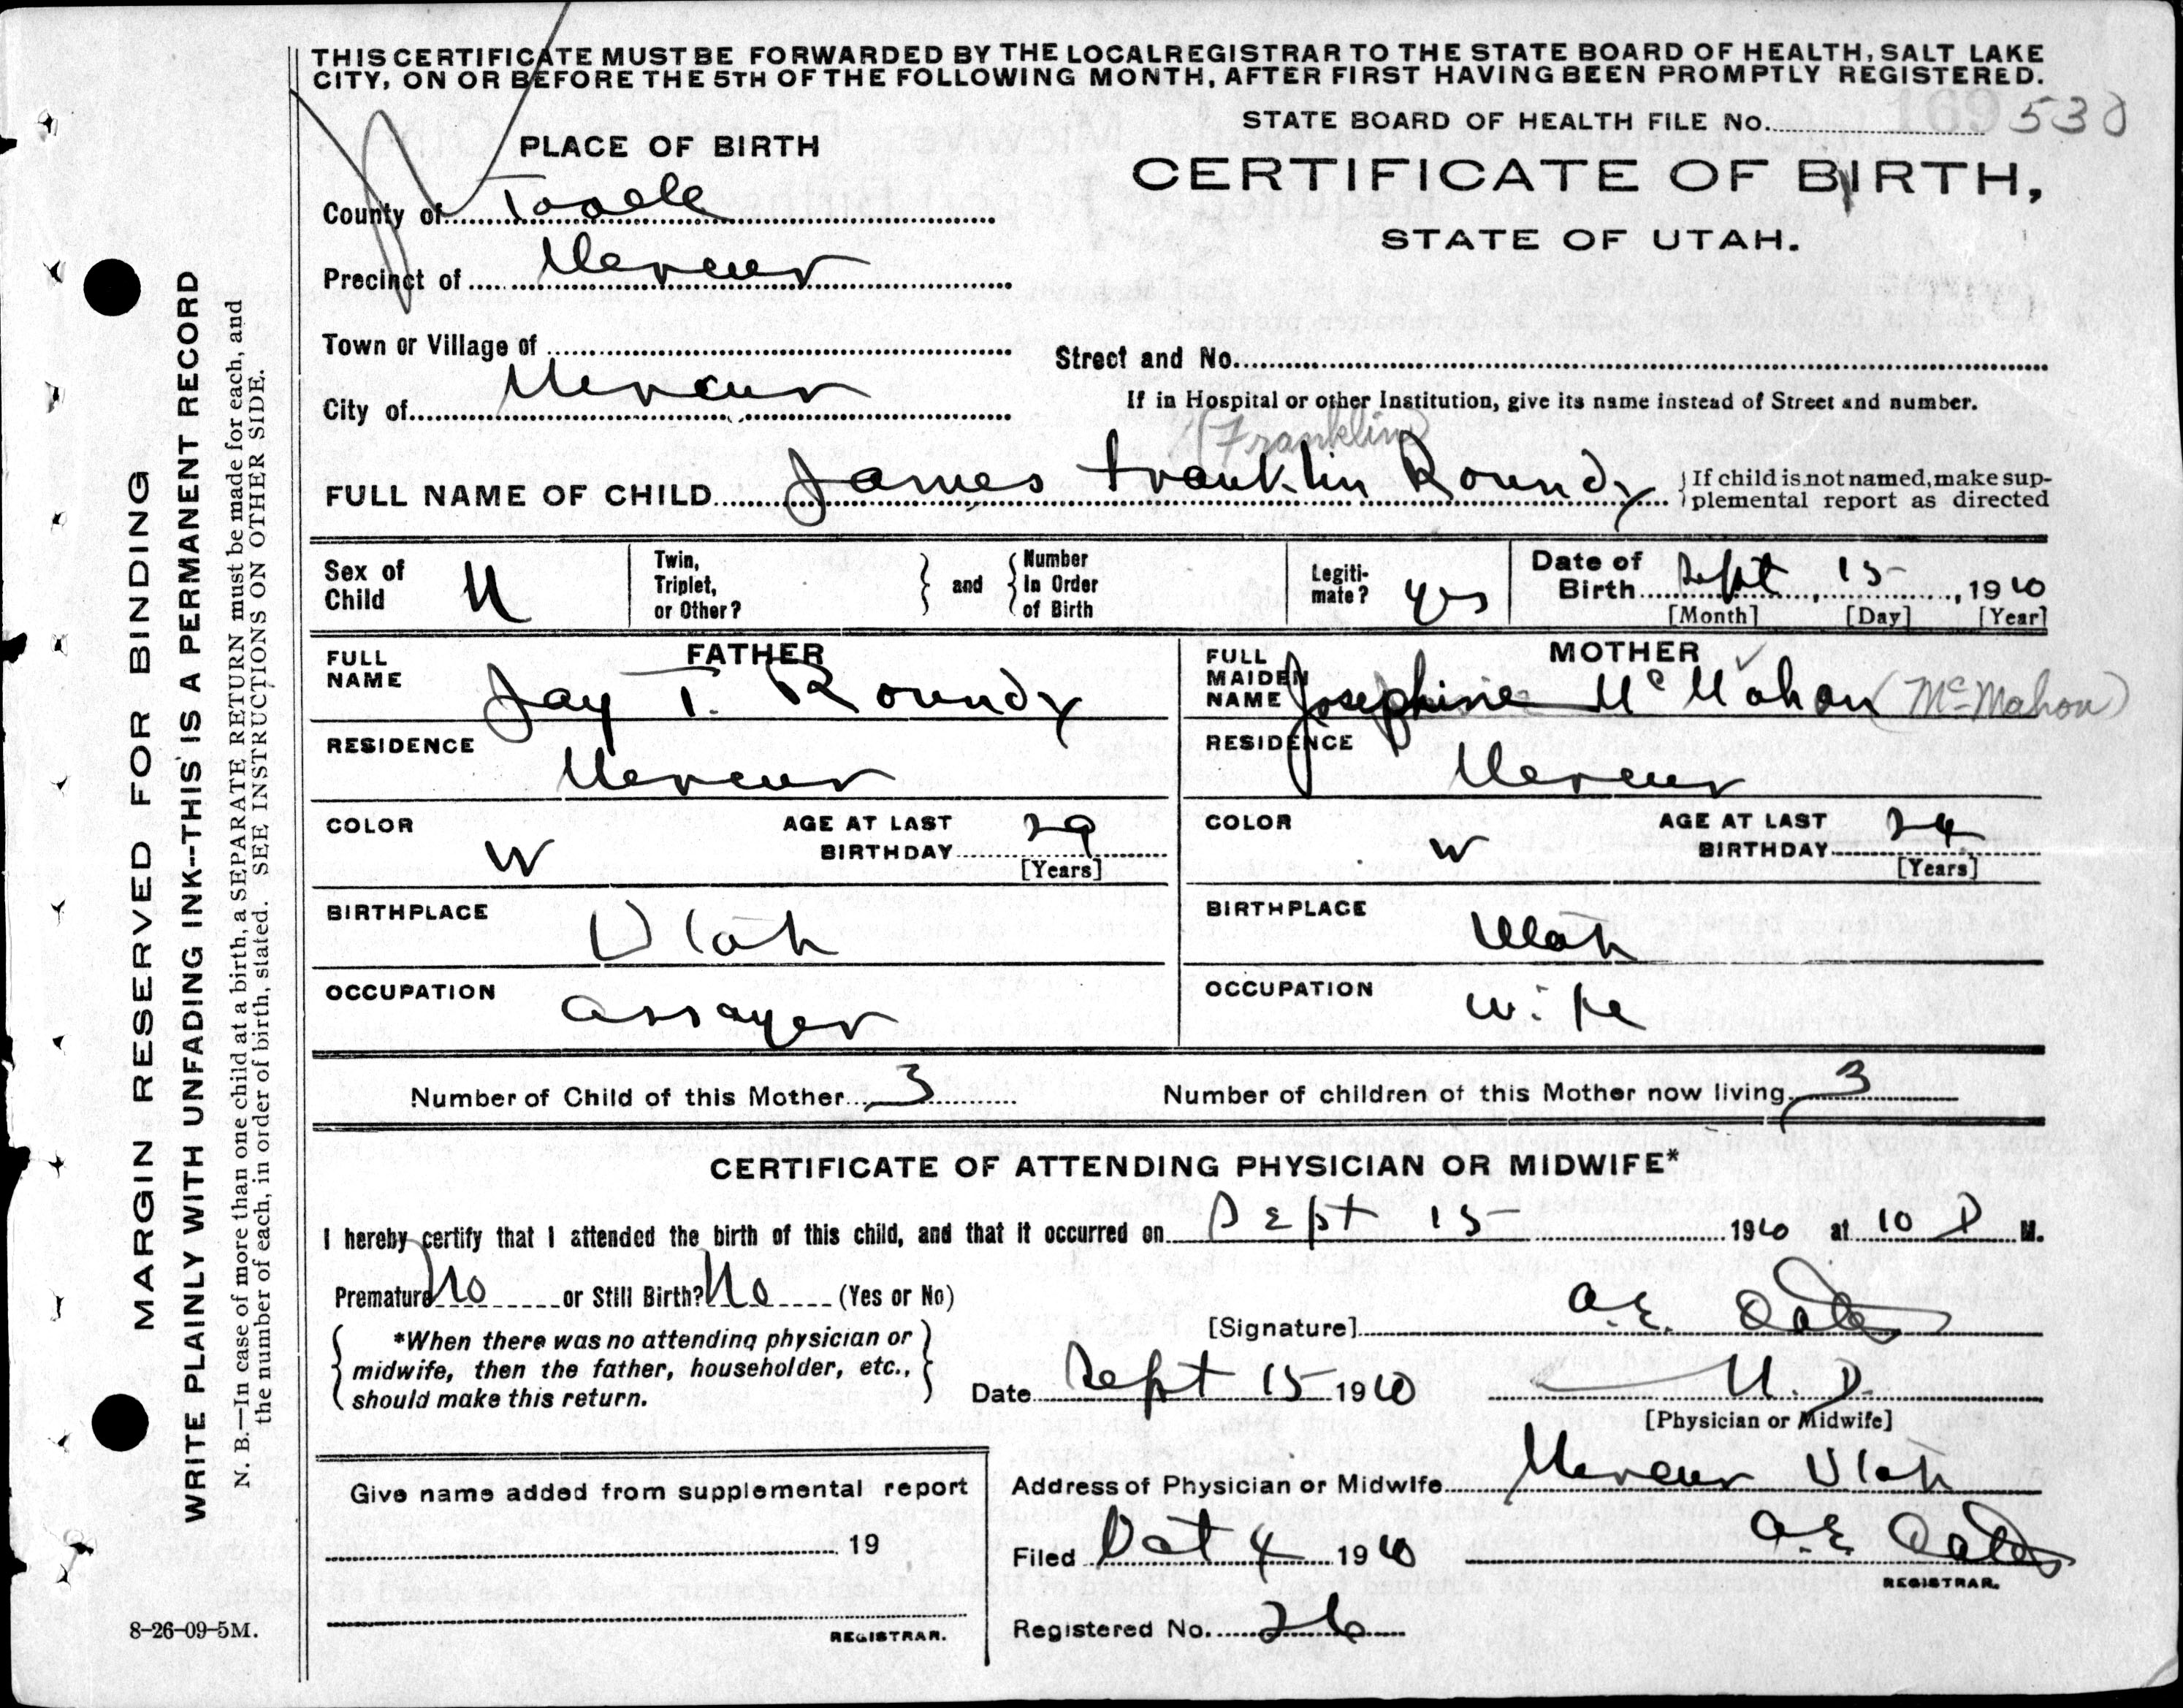 THIS CERTIFICATE MUST BE FORWARDED BY THE LOCAL REGISTRAR TO THE STATE BOARD OF HEALTH, SALT LAKE
CITY, ON OR BEFORE THE 5TH OF THE FOLLOWING MONTH, AFTER FIRST HAVING BEEN PROMPTLY REGISTERED.
STATE BOARD OF HEALTH FILE No. 169 530
PLACE OF BIRTH
CERTIFICATE OF BIRTH,
STATE OF UTAH.
County of Tooele
Precinct of Mercur
Town or Village of
Street and No.
City of Mercur
If in Hospital or other Institution, give its name instead of Street and number.
(Franklin)
FULL NAME OF CHILD James Franklin Roundy
If child is not named, make sup-
plemental report as directed
Sex of Child M
Twin, Triplet, or Other?
and
Number In Order of Birth
Legiti-mate? yes
Date of Birth Sept, 15, 1910
[Month] [Day] [Year]
FATHER
FULL NAME Jay T. Roundy
RESIDENCE Mercur
COLOR W
AGE AT LAST BIRTHDAY 29
[Years]
BIRTHPLACE Utah
OCCUPATION assayer
MOTHER
FULL MAIDEN NAME Josephine McMahon (McMahon)
RESIDENCE Mercur
COLOR W
AGE AT LAST BIRTHDAY 24
[Years]
BIRTHPLACE Utah
OCCUPATION wife
Number of Child of this Mother 3
Number of children of this Mother now living 3
CERTIFICATE OF ATTENDING PHYSICIAN OR MIDWIFE*
I hereby certify that I attended the birth of this child, and that it occurred on Sept 15 1910 at 10 P M.
Premature No or Still Birth? No (Yes or No)
*When there was no attending physician or
midwife, then the father, householder, etc.,
should make this return.
[Signature] A. E. Oates
Date Sept 15 1910
M. D.
[Physician or Midwife]
Give name added from supplemental report
19
REGISTRAR.
Address of Physician or Midwife Mercur Utah
Filed Oct 4 1910
A. E. Oates
REGISTRAR.
Registered No. 26
8-26-09-5M.
MARGIN RESERVED FOR BINDING
WRITE PLAINLY WITH UNFADING INK--THIS IS A PERMANENT RECORD
N. B.—In case of more than one child at a birth, a SEPARATE RETURN must be made for each, and
the number of each, in order of birth, stated. SEE INSTRUCTIONS ON OTHER SIDE.